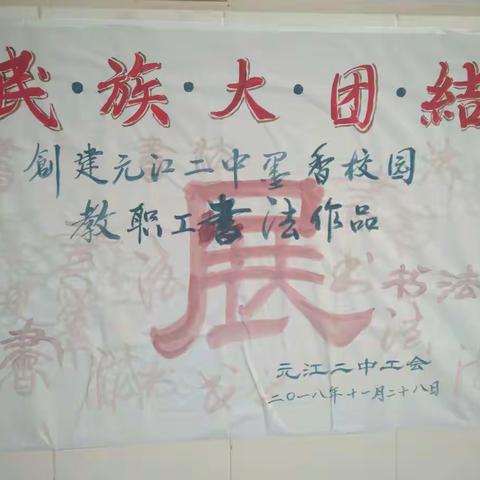 民·族·大·团·結
創建元江二中墨香校园
教职工書法作品
展
书法
書
元江二中工会
二〇一八年十一月二十八日